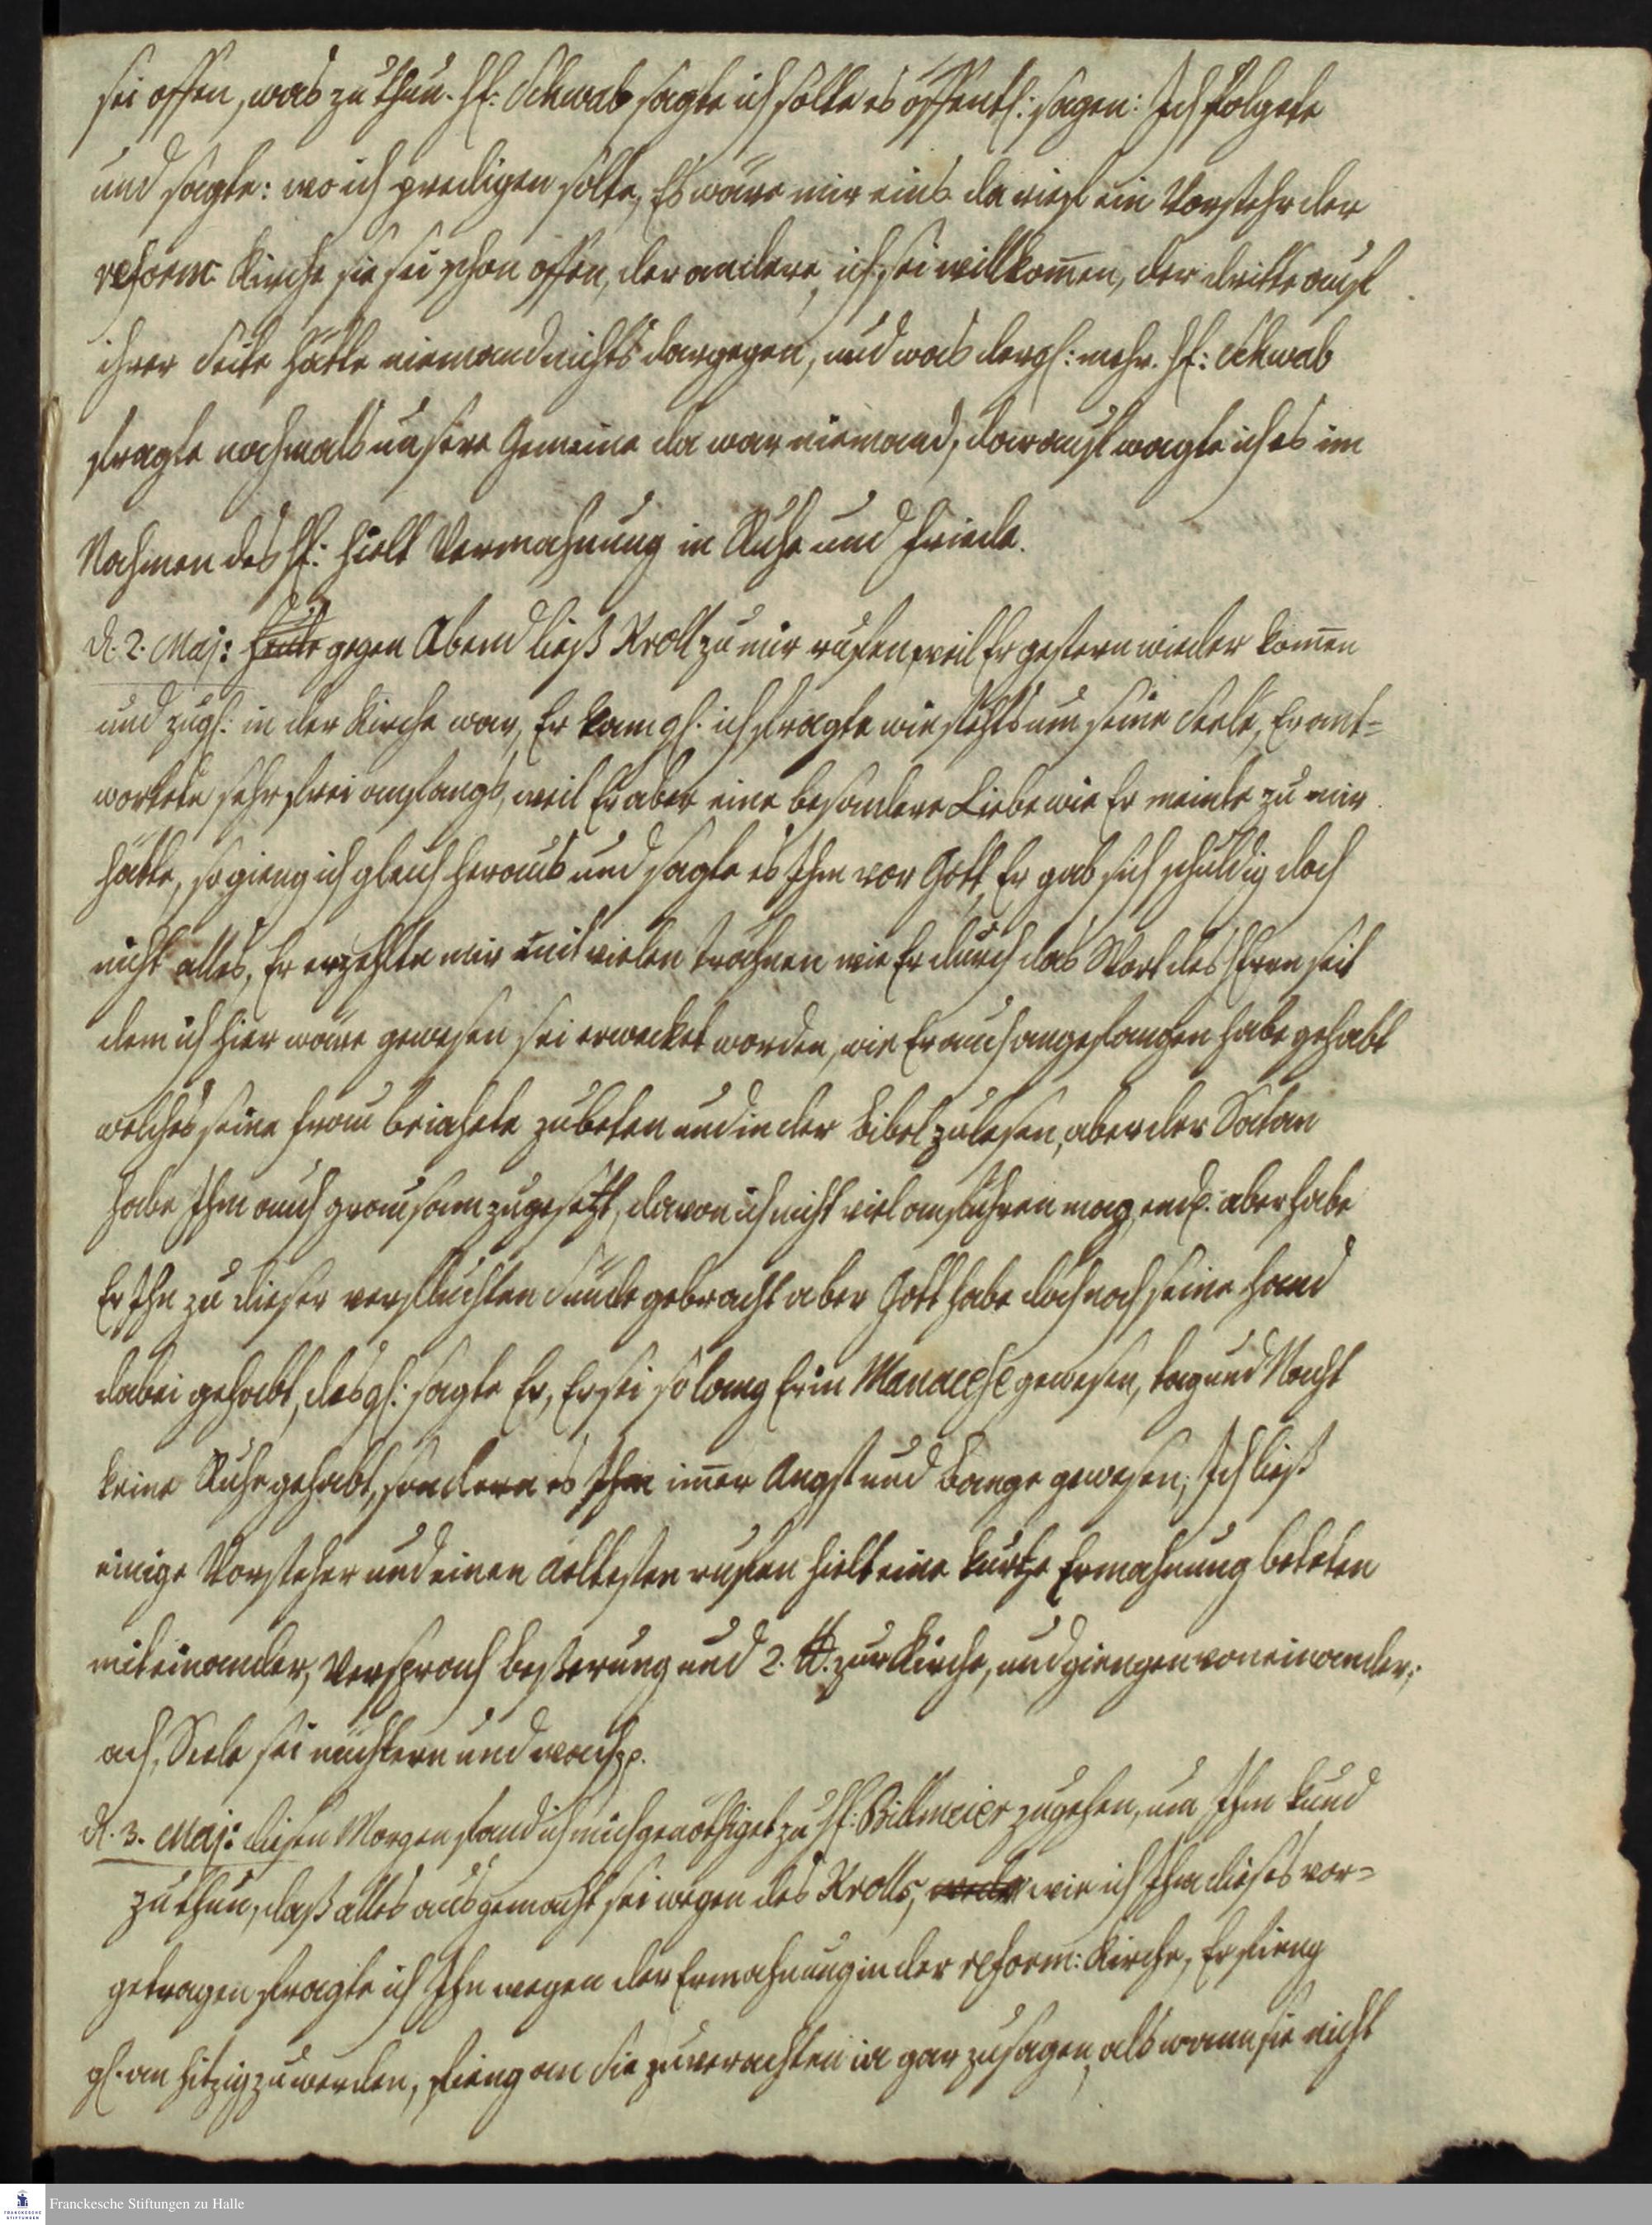 sei offen, was zu thun. H: Schwab sagte ich solte es öffentl: sagen: Ich folgete
und sagte: wo ich predigen solte, Es wäre mir eins da rief ein Vorsteher der
reform Kirche sie sei schon offen, der andere, ich sei willkom̅en, der dritte auf
ihrer Seite hätte niemand nichts dargegen, und was dergl: mehr. H: Schwab
fragte nochmals unsere Gemeine da war niemand, darauf wagte ich es im
Nahmen des H: hielt Vermahnung in Ruhe und Friede.
d. 2. Maj: heute gegen Abend ließ Kroll zu mir rufen, weil Er gestern wieder kom̅en
und zugl: in der Kirche war, Er kam gl. ich fragte wie stehts um seine Seele, Er ant=
wortete sehr frei anfangs, weil Er aber eine besondere Liebe wie Er meinte zu mir
hätte, so gieng ich gleich heraus und sagte es Ihm vor Gott, Er gab sich schuldig doch
nicht alles, Er erzehlte mir mit vielen trähnen wie Er durch das Wort des HErrn seit
dem ich hier wäre gewesen sei erwecket worden, wie Er auch angefangen habe gehabt
welches seine Frau beiahete zubeten und in der Bibel zulesen, aber der Satan
habe Ihm auch grausam zugesetzt, davon ich nicht viel anführen mag, endl. aber habe
Er Ihn zu dieser verfluchten Sünde gebracht aber Gott habe doch noch seine Hand
dabei gehabt, desgl: sagte Er, Er sei so lang Er in Manacese gewesen, tag und Nacht
keine Ruhe gehabt, sondern es Ihm im̅er Angst und bange gewesen; Ich ließ
einige Vorsteher und einen Aeltesten rufen hielt eine kurtze Ermahnung beteten
miteinander, Versprach beßerung und 2. ℔. zur Kirche, und giengen voneinander;
ach, Seele sei nüchtern und wach pp.
d. 3. Maj: diesen Morgen fand ich mich genöthiget zu H: Billmeier zugehen, um Ihm kund
zu thun, daß alles ausgemacht sei wegen des Krolls, wie ich Ihm dieses vor=
getragen fragte ich Ihn wegen der Ermahnung in der reform: Kirche, Er fieng
gl. an hitzig zu werden, fieng an die zuverachten ia gar zusagen, als wann sie nicht
Franckesche Stiftungen zu Halle